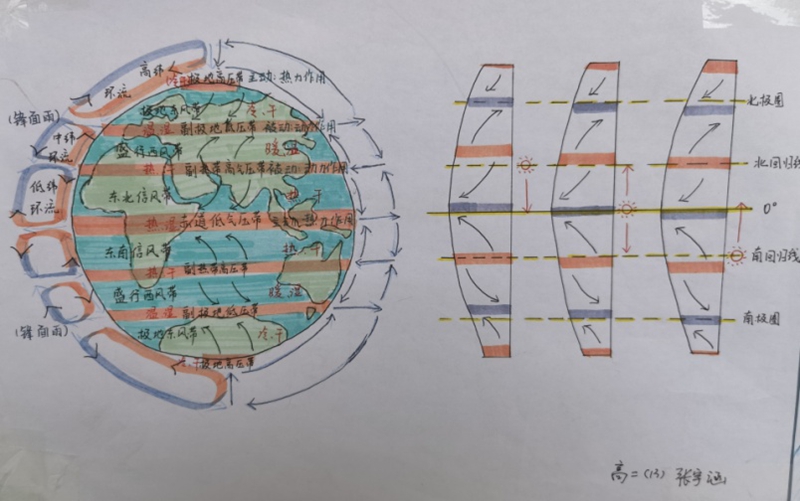 高纬
环流
(冷干)极地高压带 主动 热力作用
(锋面雨)
极地东风带 冷.干
温湿 副极地低压带 被动 动力作用
中纬
环流
盛行西风带 暖.湿
热.干 副热带高气压带 被动 动力作用
低纬
环流
东北信风带 热 干
热湿 赤道低气压带 主动 热力作用
东南信风带 热.干
热干 副热带高压带
盛行西风带 暖.湿
温湿 副极地低压带
(锋面雨)
极地东风带 冷.干
冷.干 极地高压带
北极圈
北回归线
0°
南回归线
南极圈
高二(13) 张宇涵